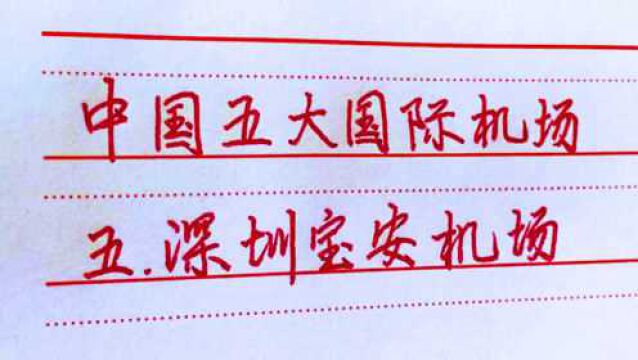 中国五大国际机场
五.深圳宝安机场